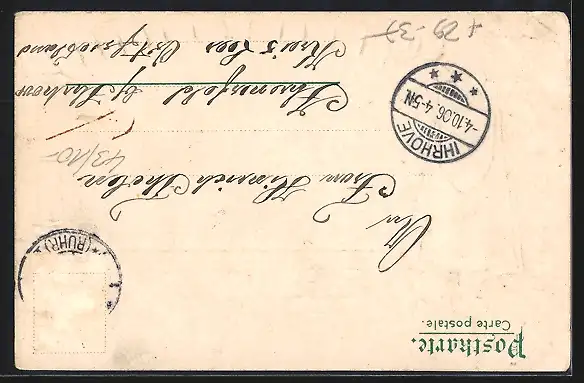 Postkarte.
Carte postale.
(RUHR)
An
Frau Hinrich Thelen
Ihrenerfeld b/ Ihrhove
Kreis Leer Ostfriesland
IHRHOVE
-4.10.06.4-5N.
43/10-